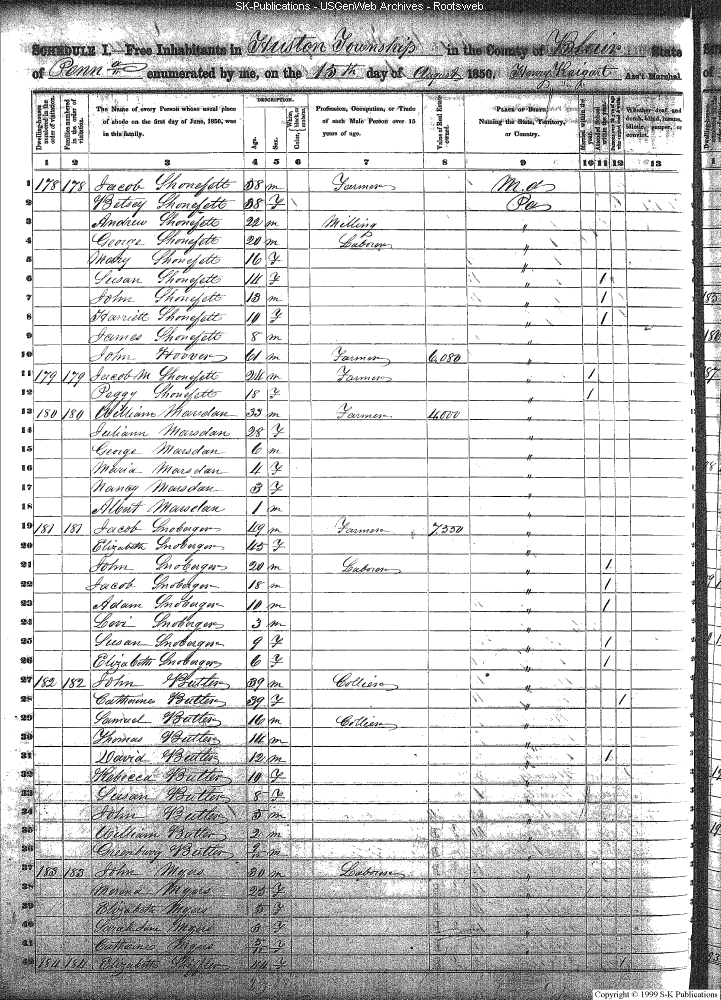 SK-Publications - USGenWeb Archives - Rootsweb
SCHEDULE I.—Free Inhabitants in Huston Township in the County of Blair State
of Penna enumerated by me, on the 15th day of August 1850. Henry Ass't Marshal.
Dwelling-houses numbered in the order of visitation. Families numbered in the order of visitation. The Name of every Person whose usual place of abode on the first day of June, 1850, was in this family. DESCRIPTION. Age. Sex. Color, White, black, or mulatto. Profession, Occupation, or Trade of each Male Person over 15 years of age. Value of Real Estate owned. PLACE OF BIRTH, Naming the State, Territory, or Country. Married within the year. Attended School within the year. Whether deaf and dumb, blind, insane, idiotic, pauper, or convict.
1 2 3 4 5 6 7 8 9 10 11 12 13
1 178 178 Jacob Shonefelt 58 m Farmer Md
2 Betsey Shonefelt 58 F Pa
3 Andrew Shonefelt 22 m Milling "
4 George Shonefelt 20 m Laborer "
5 Mary Shonefelt 16 F "
6 Susan Shonefelt 14 F " 1
7 John Shonefelt 13 m " 1
8 Harriett Shonefelt 10 F " 1
9 James Shonefelt 8 m "
10 John Hoover 61 m Farmer 6,080 "
11 179 179 Jacob M Shonefelt 24 m Farmer " 1
12 Peggy Shonefelt 18 F " 1
13 180 180 William Marsdan 33 m Farmer 4,000 "
14 Juliann Marsdan 28 F "
15 George Marsdan 6 m "
16 Maria Marsdan 4 F "
17 Nancy Marsdan 3 F "
18 Albert Marsdan 1 m "
19 181 181 Jacob Snoberger 49 m Farmer 7,350 "
20 Elizabeth Snoberger 45 F "
21 John Snoberger 20 m Laborer " 1
22 Jacob Snoberger 18 m " 1
23 Adam Snoberger 10 m " 1
24 Levi Snoberger 3 m "
25 Susan Snoberger 9 F " 1
26 Elizabeth Snoberger 6 F " 1
27 182 182 John Butler 39 m Collier "
28 Catharine Butler 39 F " 1
29 Samuel Butler 16 m Collier "
30 Thomas Butler 14 m "
31 David Butler 12 m " 1
32 Rebecca Butler 10 F "
33 Susan Butler 8 F "
34 John Butler 5 m "
35 William Butler 2 m "
36 Greenbury Butler m "
37 183 183 John Myers 30 m Laborer "
38 Myers 25 F "
39 Elizabeth Myers 5 F "
40 Myers 3 F "
41 Catharine Myers "
42 184 184 Elizabeth
Copyright © 1999 S-K Publications